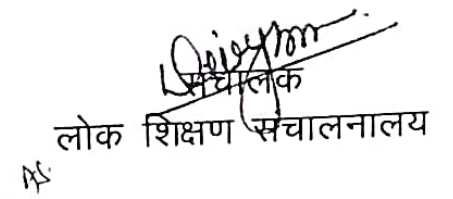 संचालक
लोक शिक्षण संचालनालय